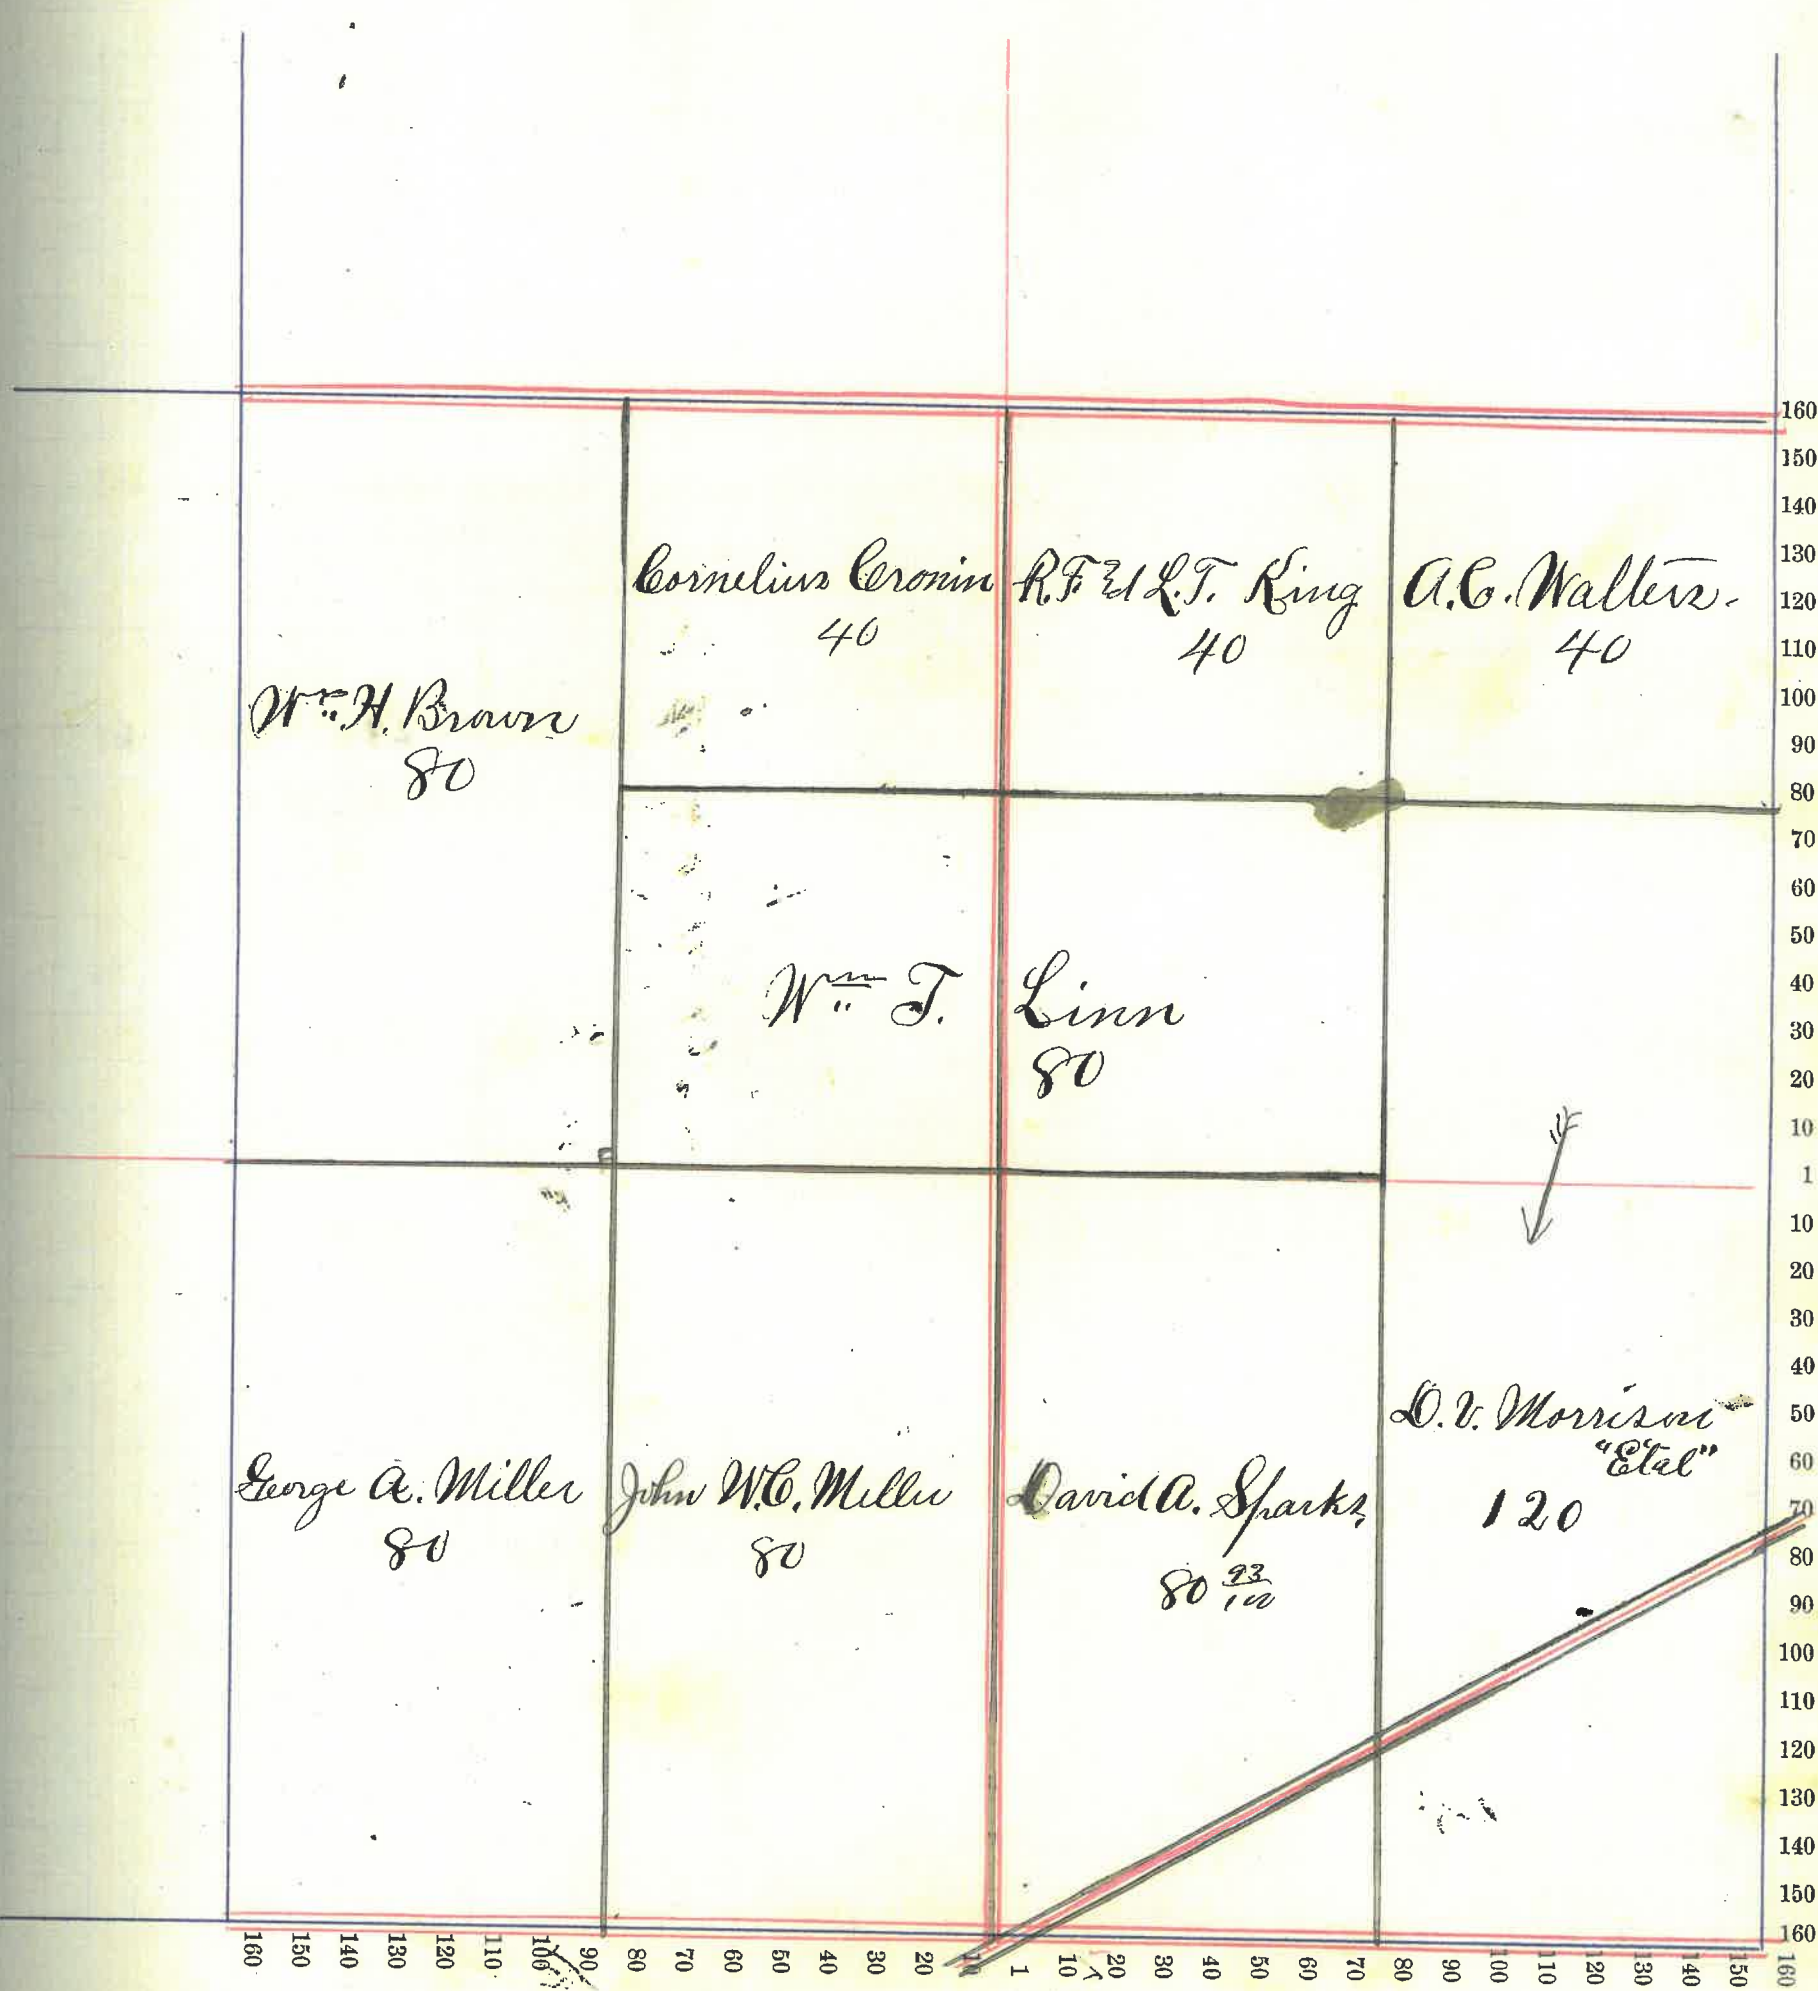 Cornelius Cronin
40
R.F. & L.T. King
40
A.C. Walters.
40
Wm. H. Brown
80
Wm. T. Linn
80
George A. Miller
80
John W.C. Miller
80
David A. Sparks
80 93/100
D.V. Morrison
"Etal"
120
160
150
140
130
120
110
100
90
80
70
60
50
40
30
20
10
1
10
20
30
40
50
60
70
80
90
100
110
120
130
140
150
160
160 150 140 130 120 110 100 90 80 70 60 50 40 30 20 10 1 10 20 30 40 50 60 70 80 90 100 110 120 130 140 150 160